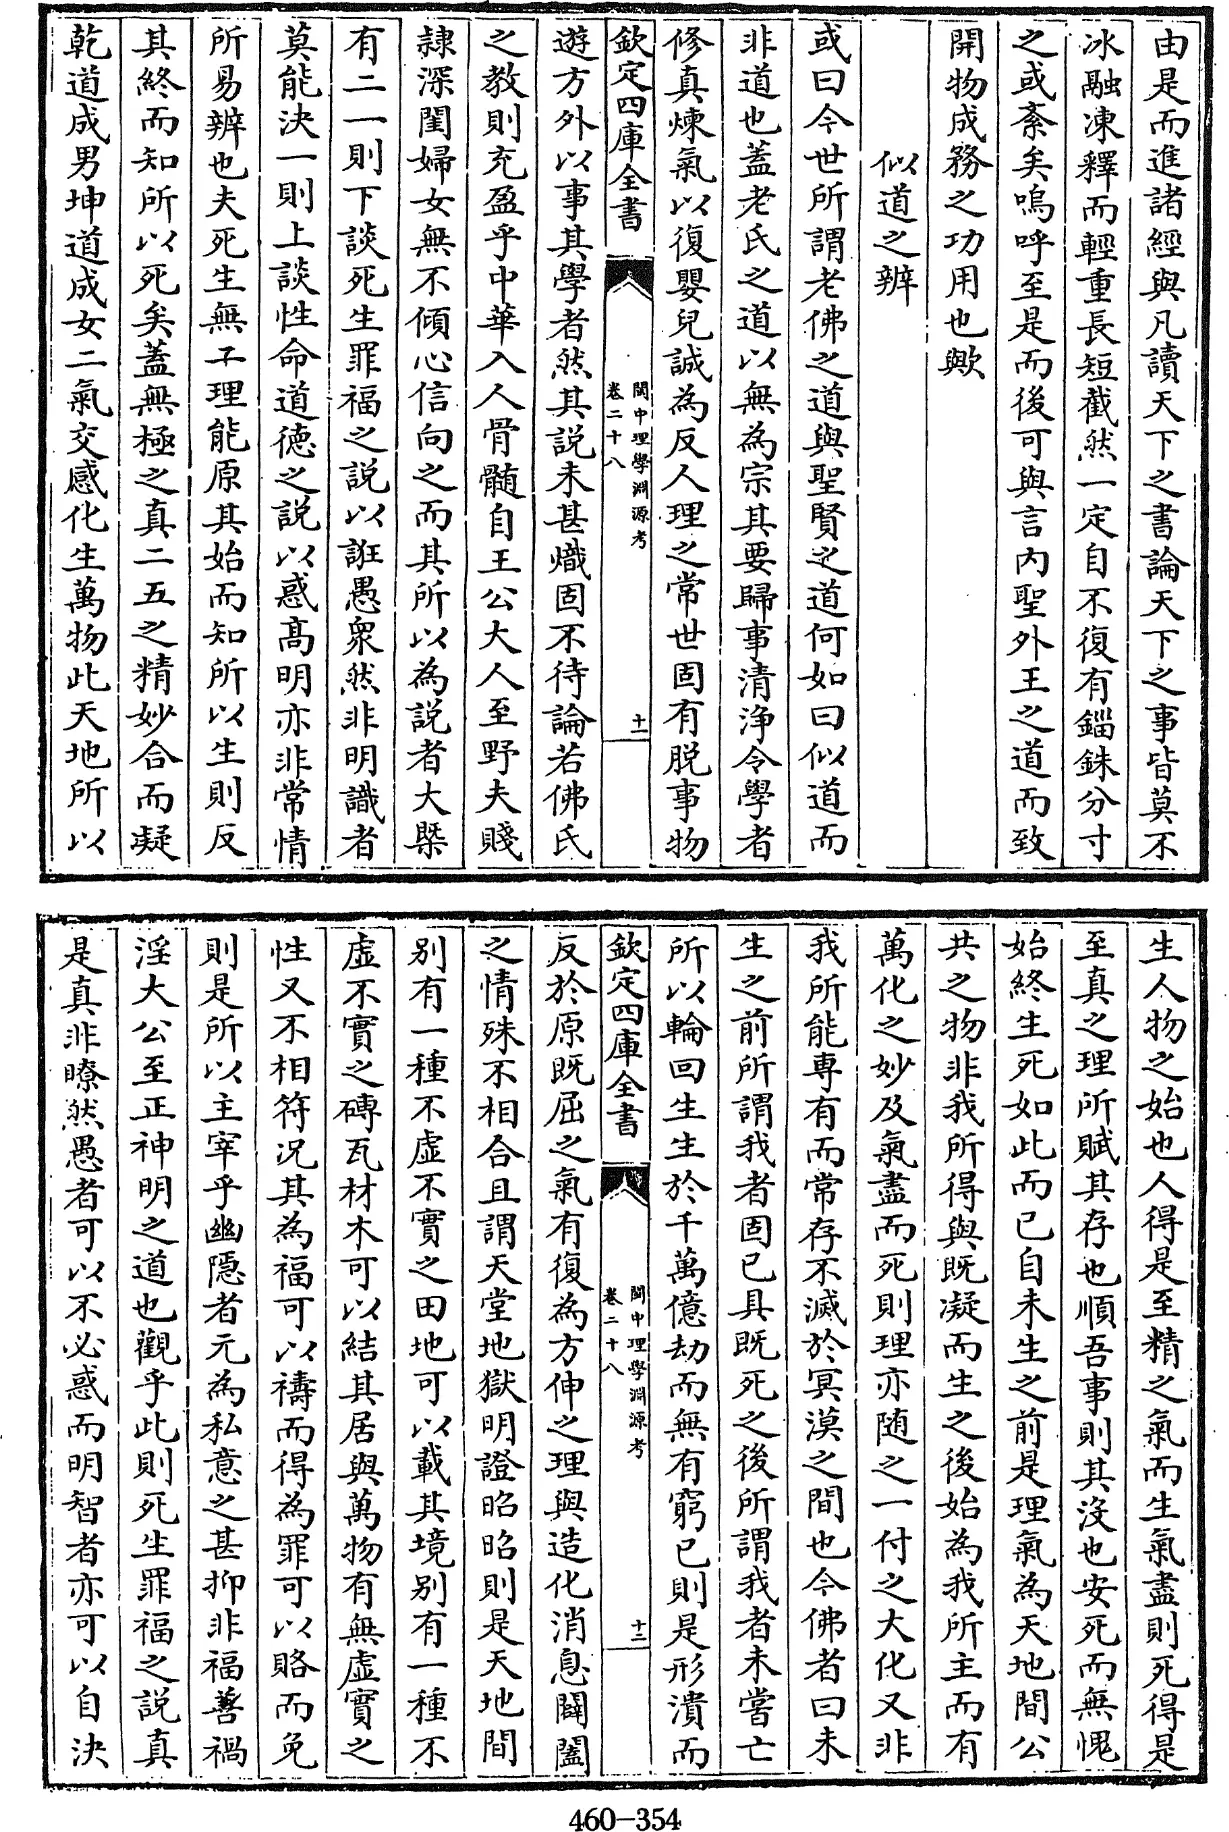 由是而進諸經與凡讀天下之書論天下之事皆莫不
冰融凍釋而輕重長短截然一定自不復有錙銖分寸
之或紊矣嗚呼至是而後可與言内聖外王之道而致
開物成務之功用也歟
似道之辨
或曰今世所謂老佛之道與聖賢之道何如曰似道而
非道也蓋老氏之道以無為宗其要歸事清浄令學者
修真煉氣以復嬰兒誠為反人理之常世固有脱事物
欽定四庫全書
閩中理學淵源考
卷二十八
十一
遊方外以事其學者然其説未甚熾固不待論若佛氏
之教則充盈乎中華入人骨髓自王公大人至野夫賤
隷深閨婦女無不傾心信向之而其所以為説者大槩
有二一則下談死生罪福之説以誑愚衆然非明識者
莫能決一則上談性命道徳之説以惑髙明亦非常情
所易辨也夫死生無二理能原其始而知所以生則反
其終而知所以死矣蓋無極之真二五之精妙合而凝
乾道成男坤道成女二氣交感化生萬物此天地所以
生人物之始也人得是至精之氣而生氣盡則死得是
至真之理所賦其存也順吾事則其没也安死而無愧
始終生死如此而已自未生之前是理氣為天地間公
共之物非我所得與既凝而生之後始為我所主而有
萬化之妙及氣盡而死則理亦隨之一付之大化又非
我所能專有而常存不滅於冥漠之間也今佛者曰未
生之前所謂我者固已具既死之後所謂我者未嘗亡
所以輪回生生於千萬億劫而無有窮已則是形潰而
欽定四庫全書
閩中理學淵源考
卷二十八
十二
反於原既屈之氣有復為方伸之理與造化消息闢闔
之情殊不相合且謂天堂地獄明證昭昭則是天地間
别有一種不虚不實之田地可以載其境别有一種不
虚不實之磚瓦材木可以結其居與萬物有無虚實之
性又不相符况其為福可以禱而得為罪可以賂而免
則是所以主宰乎幽隠者尤為私意之甚抑非福善禍
淫大公至正神明之道也觀乎此則死生罪福之説真
是真非瞭然愚者可以不必惑而明智者亦可以自決
460-354